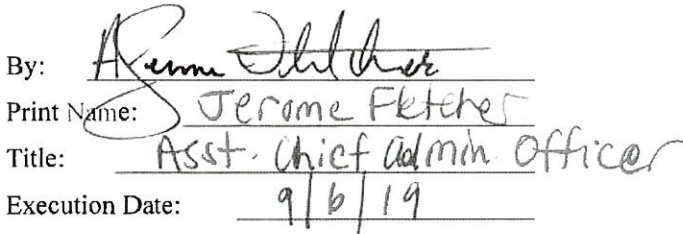 By: A Jerome Fletcher
Print Name: Jerome Fletcher
Title: Asst. Chief Admin. Officer
Execution Date: 9/6/19